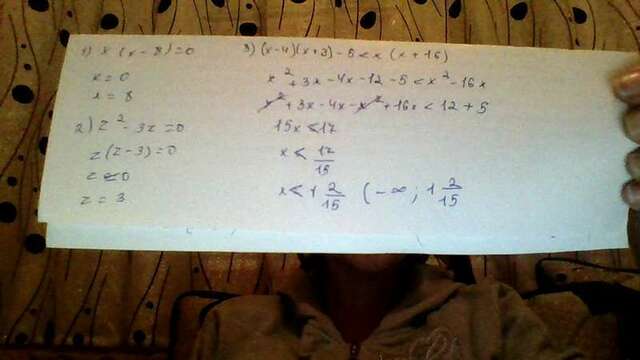 1) x (x - 8) = 0
x = 0
x = 8
2) z² - 3z = 0
z (z - 3) = 0
z = 0
z = 3
3) (x-4)(x+3) - 5 < x (x + 16)
x² + 3x - 4x - 12 - 5 < x² - 16x
x² + 3x - 4x - x² + 16x < 12 + 5
15x < 17
x < 17/15
x < 1 2/15 (-∞; 1 2/15